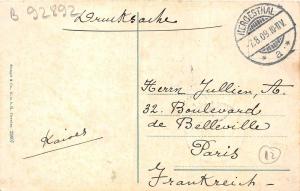 B 92892
Drucksache
HEROESTHAL
-7.8.09.10-11V.
* a *
Herrn Jullien, A.
32. Boulevard
de Belleville
Paris
Frankreich -
Kaiser
12